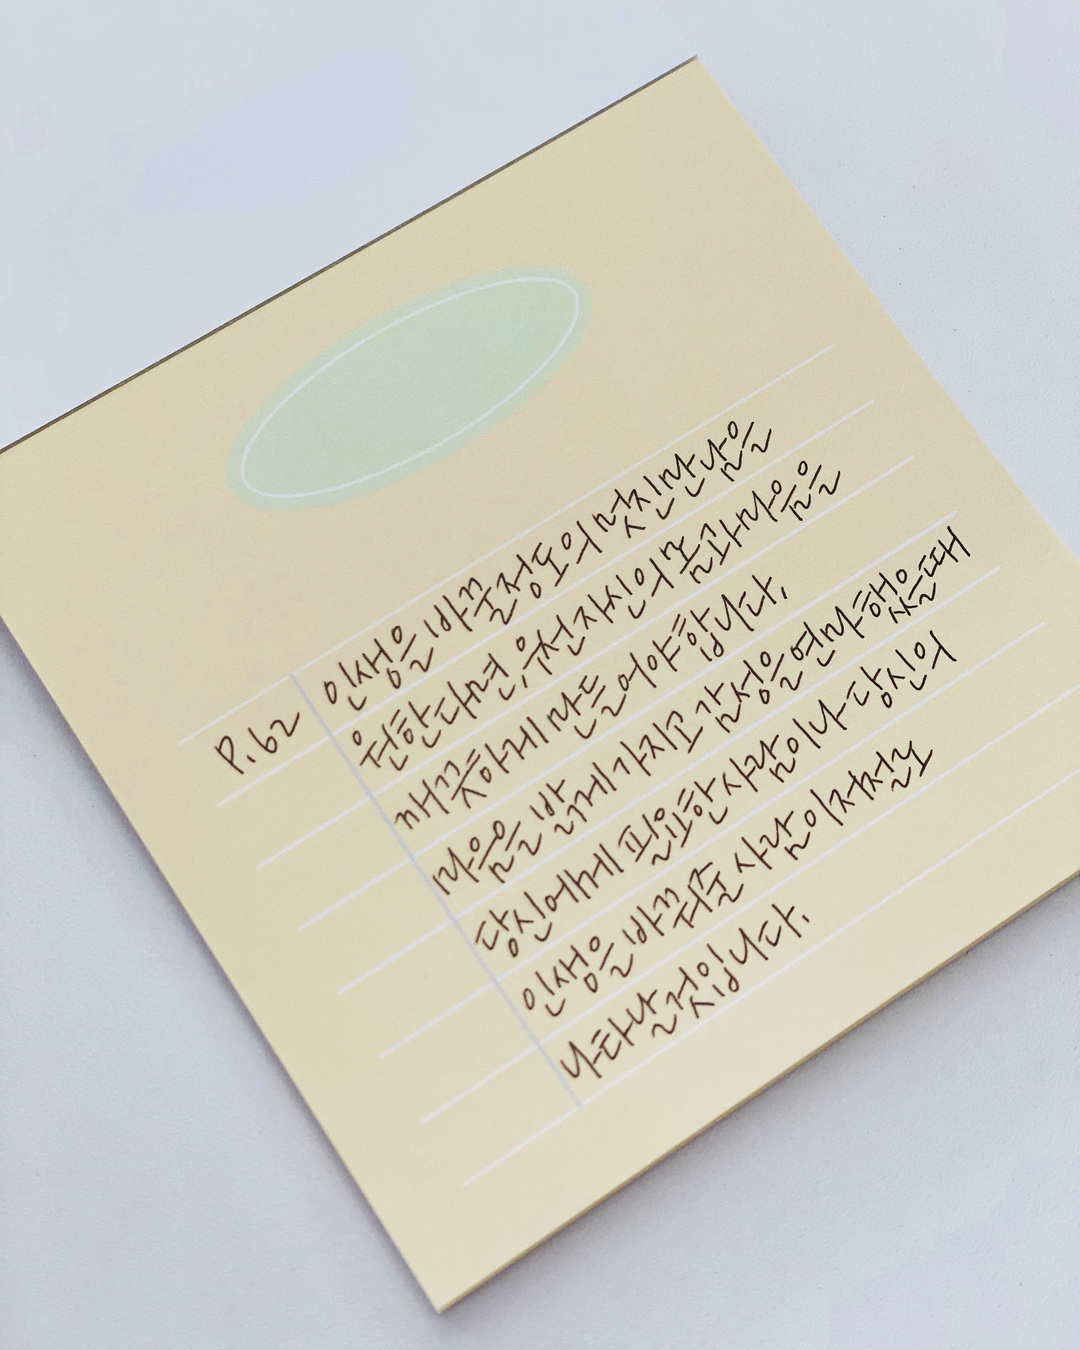 P.62 인생을 바꿀 정도의 멋진 만남을
원한다면, 우선 자신의 몸과 마음을
깨끗하게 만들어야 합니다.
마음을 밝게 가지고 감성을 연마했을 때
당신에게 필요한 사람이나 당신의
인생을 바꿔줄 사람이 저절로
나타날 것입니다.